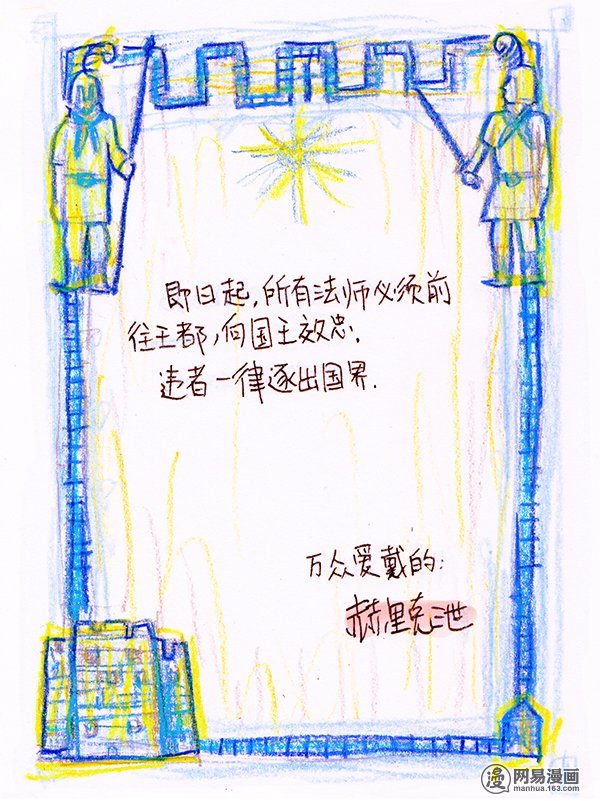 即日起,所有法师必须前
往王都,向国王效忠.
违者一律逐出国界.
万众爱戴的:
赫里克三世
漫 网易漫画
manhua.163.com